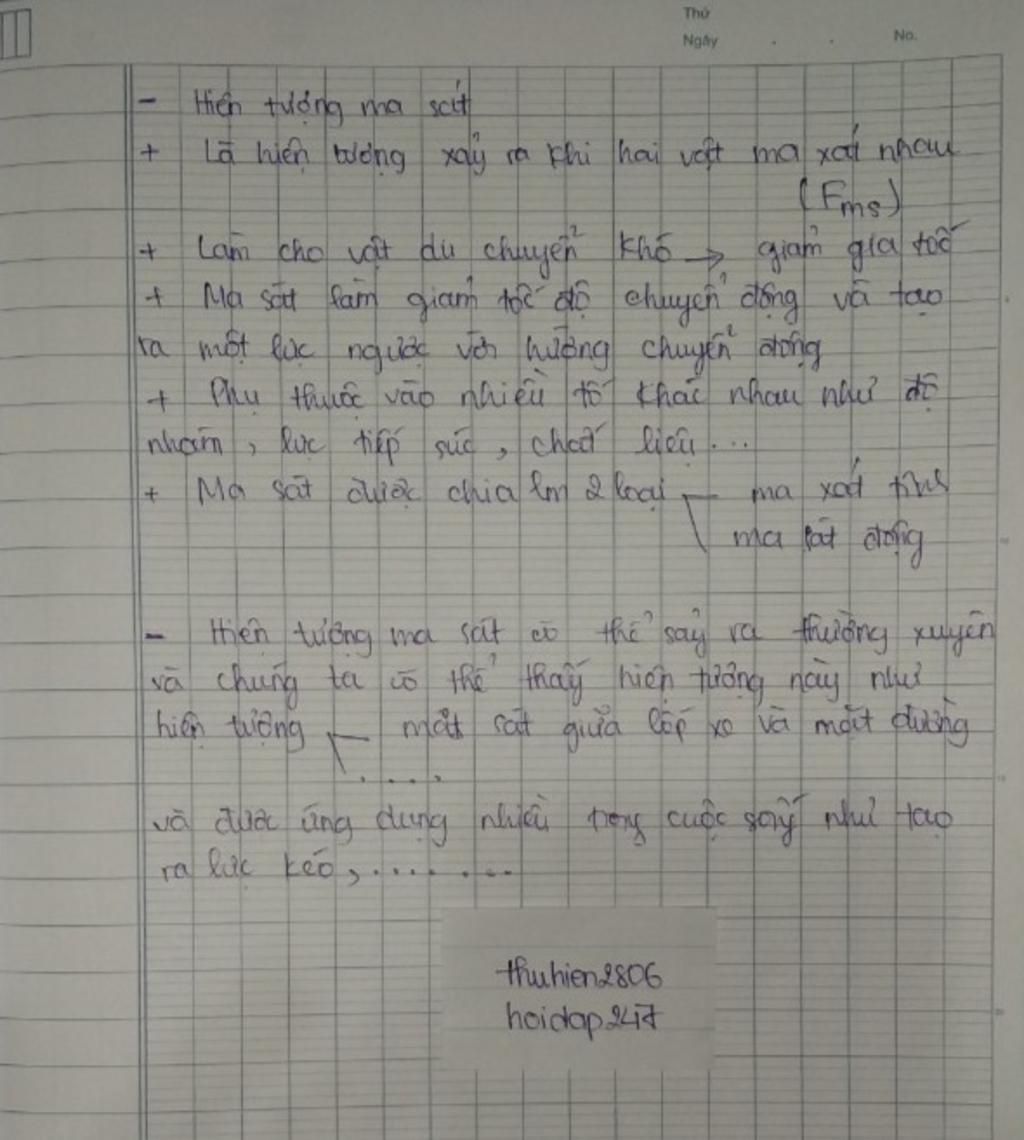 Thứ
Ngày . . No.
- Hiện tượng ma sát
+ Là hiện tượng xảy ra khi hai vật ma xát nhau
(Fms)
+ Làm cho vật du chuyển khó → giảm gia tốc
+ Ma sát làm giảm tốc độ chuyển động và tạo
ra một lực ngược với hướng chuyển động
+ Phụ thuộc vào nhiều tố khác nhau như độ
nhám, lực tiếp súc, chất liệu...
+ Ma sát được chia lm 2 loại ma xát tĩnh
ma sát động
- Hiện tượng ma sát có thể sảy ra thường xuyên
và chúng ta có thể thấy hiện tượng này như
hiện tượng mát sát giữa lốp xe và mặt đường
....
và được ứng dụng nhiều trong cuộc sống như tạo
ra lực kéo, .......
thuhien2806
hoidap247